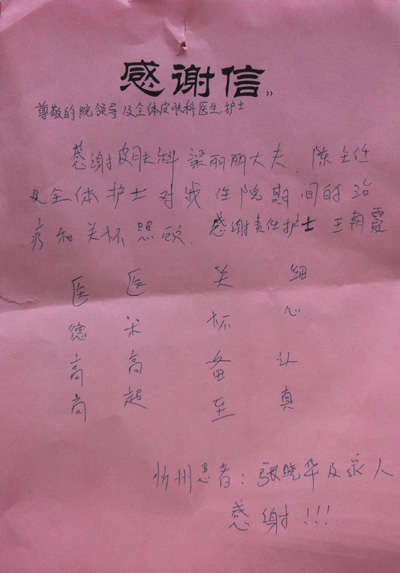 感谢信
尊敬的院领导及全体皮肤科医生护士
感谢皮肤科梁丽丽大夫、陈主任
及全体护士对我住院期间的治
疗和关怀照顾.感谢责任护士王朝霞
医德高尚
医术高超
关怀备至
细心认真
忻州患者：张晓华及家人
感谢!!!